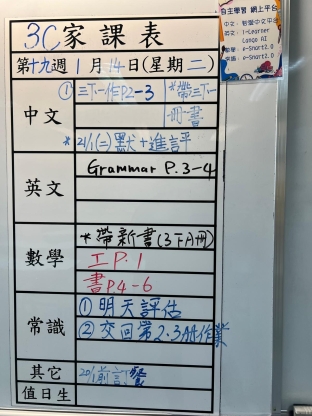 3C家課表
自主學習 網上平台
第十九週 1月14日(星期二)
中文
① 三下一作P2-3
*帶三下一
一冊一書
*21/1(二)默+進評
英文
Grammar P.3-4
數學
*帶新書(3下A冊)
工P.1
書P4-6
常識
① 明天評估
② 交回第2.3冊作業
其它
20/1前訂餐
值日生
英文: i-Learner
Lango AI
e-Smart2.0
e-Smart2.0